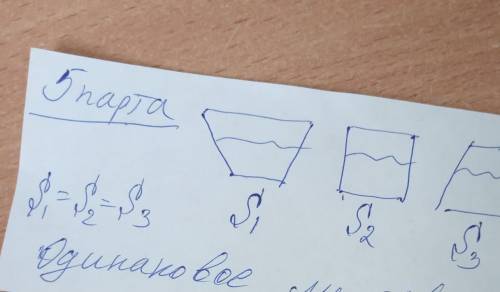 5 парта
S₁ = S₂ = S₃
S₁
S₂
S₃
Одинаковое